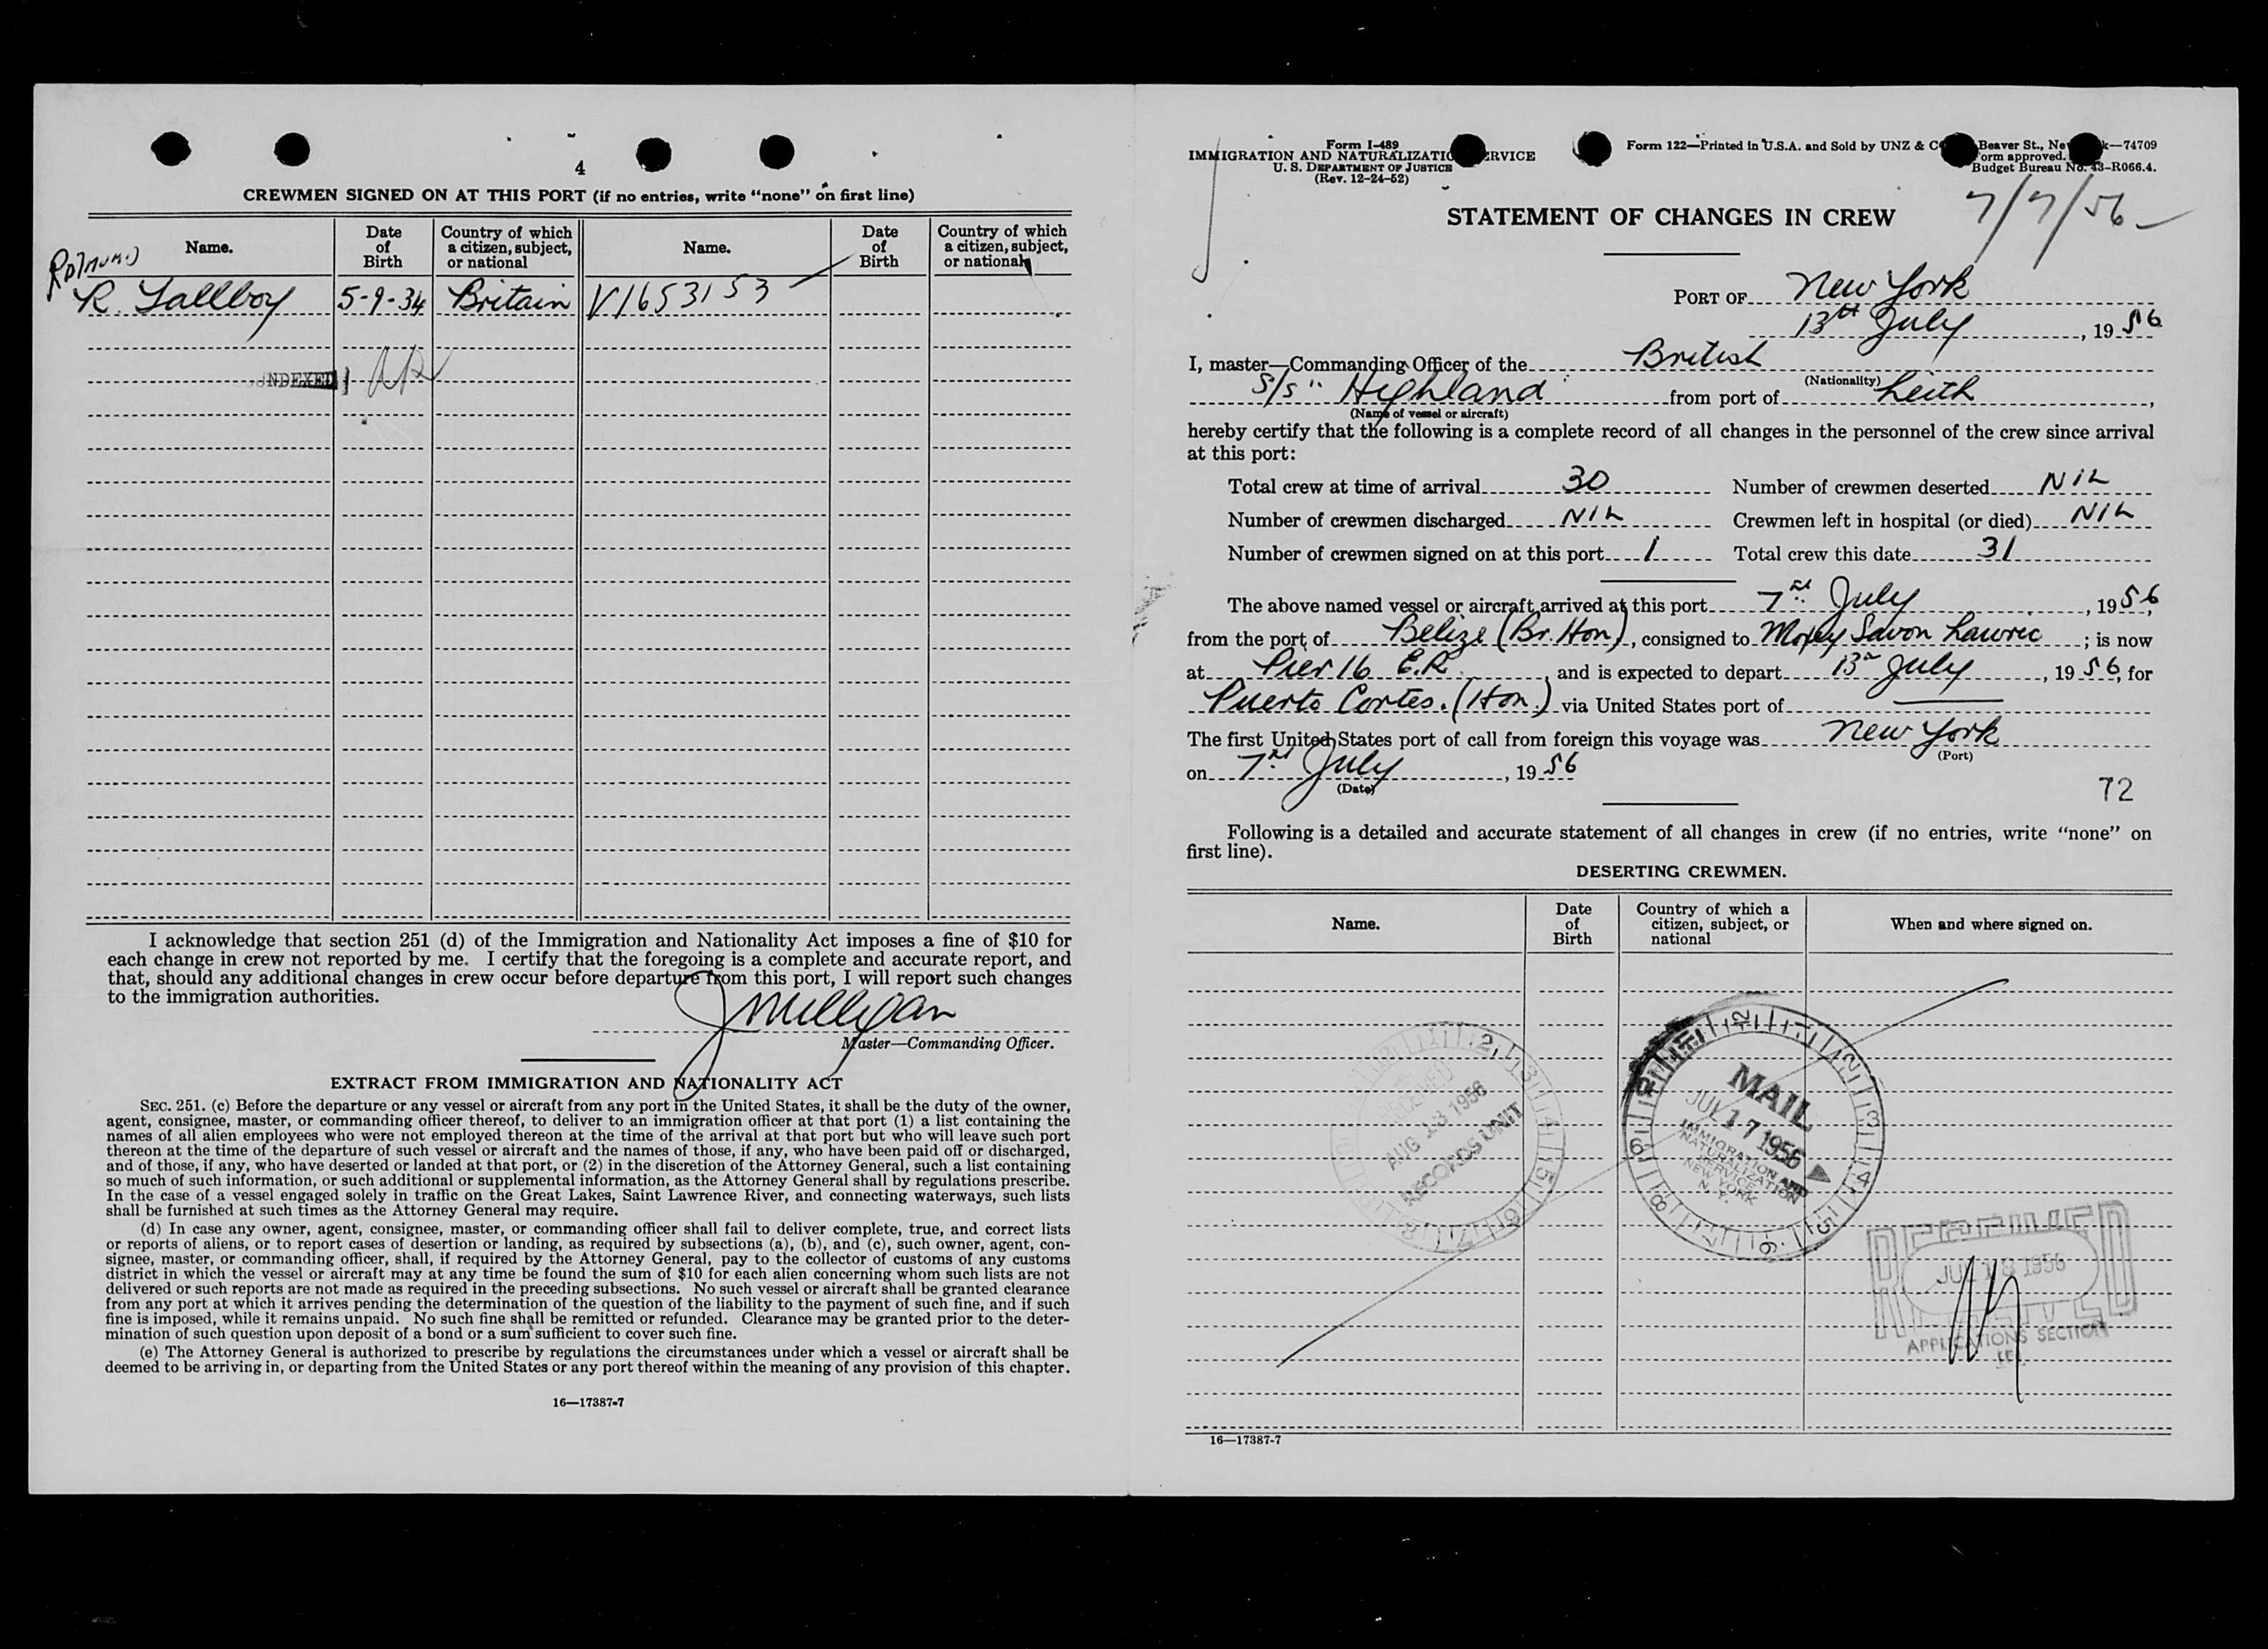 4
CREWMEN SIGNED ON AT THIS PORT (if no entries, write “none” on first line)
Name. Date of Birth Country of which a citizen, subject, or national Name. Date of Birth Country of which a citizen, subject, or national
R. Tallboy 5-9-34 Britain V1653153
INDEXED
I acknowledge that section 251 (d) of the Immigration and Nationality Act imposes a fine of $10 for
each change in crew not reported by me. I certify that the foregoing is a complete and accurate report, and
that, should any additional changes in crew occur before departure from this port, I will report such changes
to the immigration authorities.
J Milligan
Master—Commanding Officer.
EXTRACT FROM IMMIGRATION AND NATIONALITY ACT
SEC. 251. (c) Before the departure or any vessel or aircraft from any port in the United States, it shall be the duty of the owner,
agent, consignee, master, or commanding officer thereof, to deliver to an immigration officer at that port (1) a list containing the
names of all alien employees who were not employed thereon at the time of the arrival at that port but who will leave such port
thereon at the time of the departure of such vessel or aircraft and the names of those, if any, who have been paid off or discharged,
and of those, if any, who have deserted or landed at that port, or (2) in the discretion of the Attorney General, such a list containing
so much of such information, or such additional or supplemental information, as the Attorney General shall by regulations prescribe.
In the case of a vessel engaged solely in traffic on the Great Lakes, Saint Lawrence River, and connecting waterways, such lists
shall be furnished at such times as the Attorney General may require.
(d) In case any owner, agent, consignee, master, or commanding officer shall fail to deliver complete, true, and correct lists
or reports of aliens, or to report cases of desertion or landing, as required by subsections (a), (b), and (c), such owner, agent, con-
signee, master, or commanding officer, shall, if required by the Attorney General, pay to the collector of customs of any customs
district in which the vessel or aircraft may at any time be found the sum of $10 for each alien concerning whom such lists are not
delivered or such reports are not made as required in the preceding subsections. No such vessel or aircraft shall be granted clearance
from any port at which it arrives pending the determination of the question of the liability to the payment of such fine, and if such
fine is imposed, while it remains unpaid. No such fine shall be remitted or refunded. Clearance may be granted prior to the deter-
mination of such question upon deposit of a bond or a sum sufficient to cover such fine.
(e) The Attorney General is authorized to prescribe by regulations the circumstances under which a vessel or aircraft shall be
deemed to be arriving in, or departing from the United States or any port thereof within the meaning of any provision of this chapter.
16—17387-7
Form I-489
IMMIGRATION AND NATURALIZATION SERVICE
U. S. DEPARTMENT OF JUSTICE
(Rev. 12-24-52)
Form 122—Printed in U.S.A. and Sold by UNZ & Beaver St., —74709
orm approved.
Budget Bureau No. 43-R066.4.
STATEMENT OF CHANGES IN CREW
7/7/56
PORT OF New York
13th July, 1956
I, master—Commanding Officer of the British
(Nationality)
S/S "Highland" from port of Leith,
(Name of vessel or aircraft)
hereby certify that the following is a complete record of all changes in the personnel of the crew since arrival
at this port:
Total crew at time of arrival 30 Number of crewmen deserted Nil
Number of crewmen discharged Nil Crewmen left in hospital (or died) Nil
Number of crewmen signed on at this port 1 Total crew this date 31
The above named vessel or aircraft arrived at this port 7th July, 1956,
from the port of Belize (Br. Hon), consigned to Moxey Savon Lawric; is now
at Pier 16 E.R., and is expected to depart 13th July, 1956, for
Puerto Cortes. (Hon.) via United States port of
The first United States port of call from foreign this voyage was New York
(Port)
on 7th July, 1956
(Date)
72
Following is a detailed and accurate statement of all changes in crew (if no entries, write “none” on
first line).
DESERTING CREWMEN.
Name. Date of Birth Country of which a citizen, subject, or national When and where signed on.
MAIL
JUL 17 1956
IMMIGRATION AND
NATURALIZATION
SERVICE
NEW YORK
N. Y.
RECEIVED
AUG 1956
RECORDS UNIT
RECEIVED
JUL 18 1956
APPLICATIONS SECTION
16—17387-7